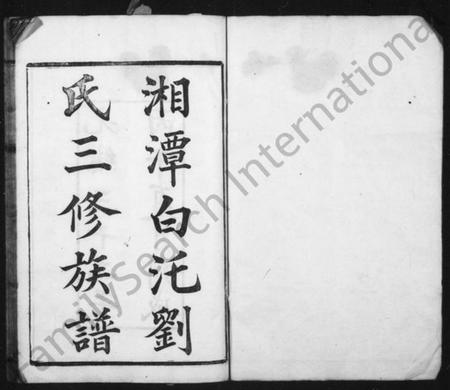 湘潭白汑劉
氏三修族譜
FamilySearch International